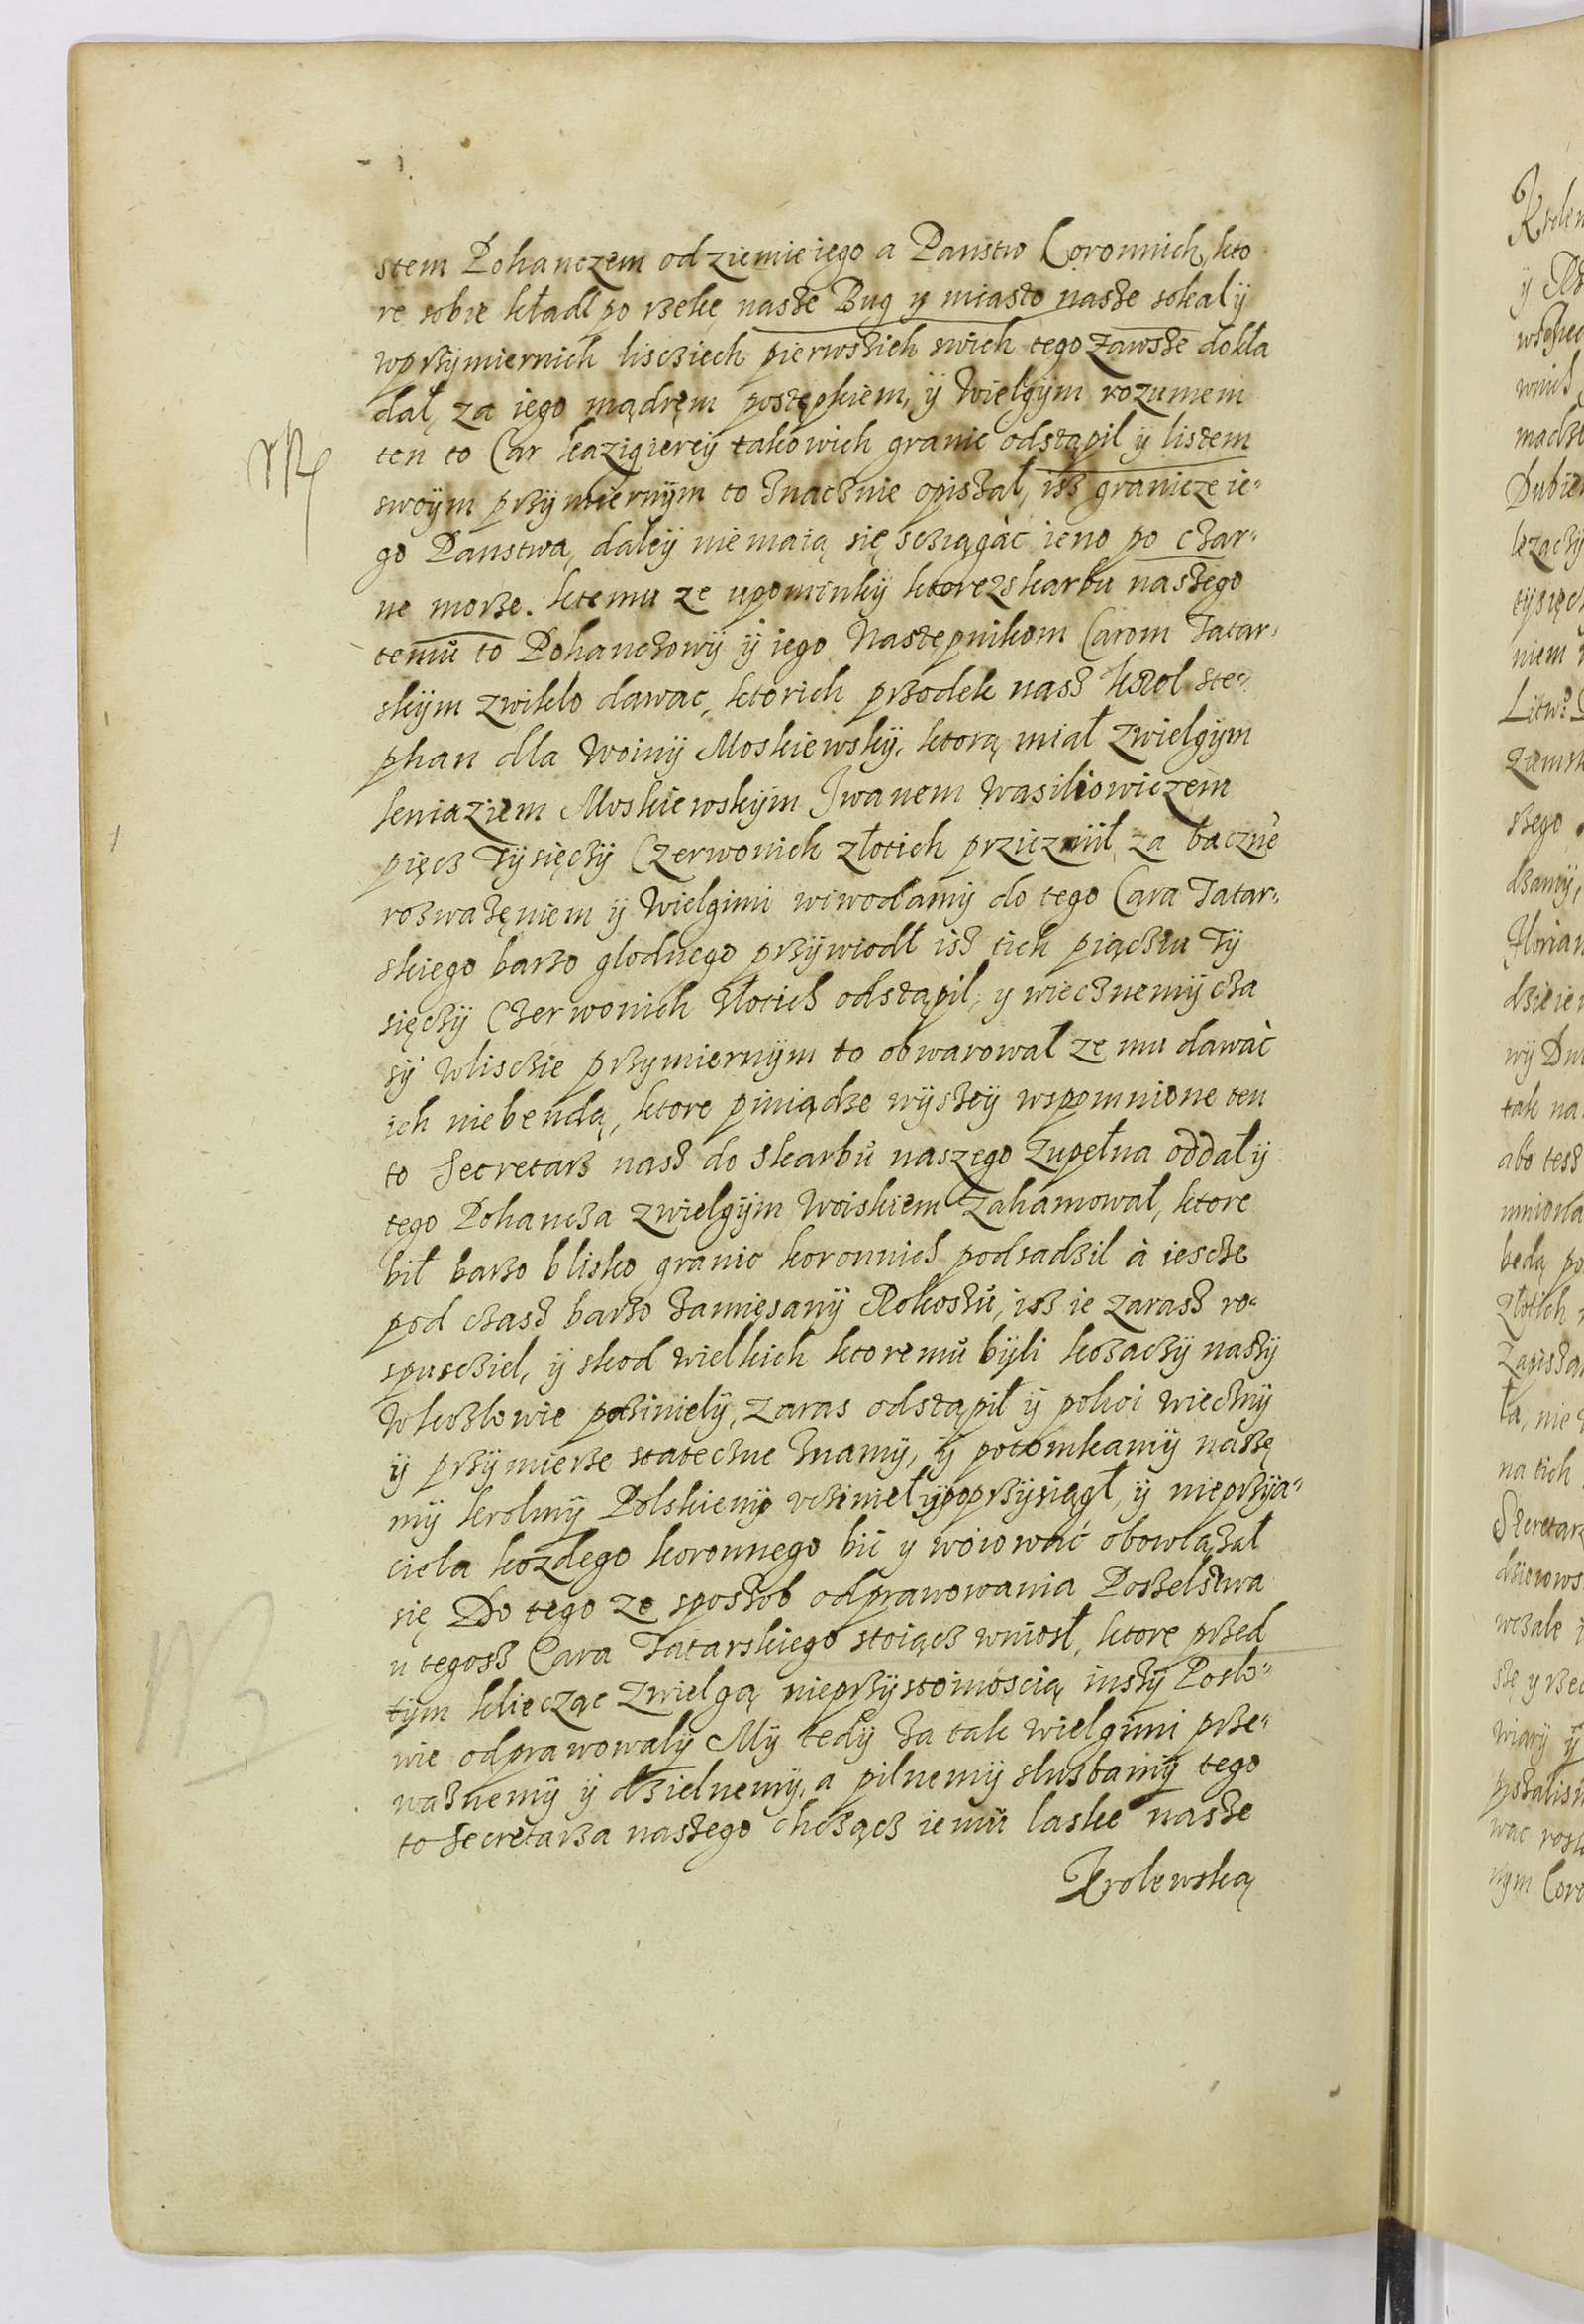 stem Pohanczem od ziemie iego a Panstw Coronnich, kto
re sobie kładl po rzekę nasze Bug y miasto nasze sokal ÿ
wprzÿmiernich lisciech pierwszich swich tego zawsze dokła
dał, za iego mądręm postępkiem, ÿ Wielgÿm rozumem
ten to Car kazigiereÿ takowich granic odstąpil ÿ listem
swoÿm przÿmiernÿm to Znacznie opiszał, isz granicze ie-
go Panstwa, daleÿ nie maią się sciągàc ieno po czar-
ne morze. ktemu ze upominkÿ ktore zskarbu naszego
temu to Pohanczowÿ ÿ iego Nastepnikom Carom Tatar-
skÿm zwiklo dawac, ktorich przodek nasz krol Ste-
phan dla Woinÿ Moskiewskÿ, ktorą miał zwielgÿm
keniaziem Moskiewskÿm Jwanem Wasiliowiczem
pięcz Tÿsięczÿ Czerwonich złotich prziczniił, za baczne
rozwazęniem ÿ Wielgimi wiwodamÿ do tego Cara Tatar-
skiego barzo glodnego przÿwiodł isz tich piącziu Tÿ
sięczÿ Czerwonich złotich odstąpil, y wiecznemÿ cza
sÿ Wliscie przymiernÿm to obwarował ze mu dawàc
ich niebendą, ktore piniądze wÿszeÿ wspomnione ten
to Secretarz nasz do Skarbu naszego Zupełna oddał ÿ
tego Pohancza zwielgÿm Woiskiem Zahamował, ktore
bił barzo blisko granic koronnich podsadził à iescze
pod czasz barzo Zamięsanÿ Rokoszu, isz ie zarasz ro-
spuscziel, ÿ skod wielkich ktoremu bÿli kozaczÿ naszÿ
Wkozlowie pocziniely, zaras odstąpił ÿ pokoi wiecznÿ
ÿ przÿmierze stateczne Znamÿ, ÿ potomkamÿ naszę
mÿ krolmÿ Polskiemÿ vczinieł ÿ poprzÿsiągł, ÿ nieprzÿa-
ciela kozdego koronnego bić y woiować obowiązał
się Do tego ze sposzob odprawowania Poszelstwa
u tegosz Cara Tatarskiego stoiącz wniosł, ktore przed
tÿm klieczącz zwielgą nieprzÿstoinoscią inszÿ Poslo-
wie odprawowalÿ Mÿ tedÿ za tak wielgimi prze-
waznemÿ ÿ dzielnemÿ, a pilnemÿ sluzbamÿ tego
to Secretarza naszego chcząc iemu laske nasze
Krolewską